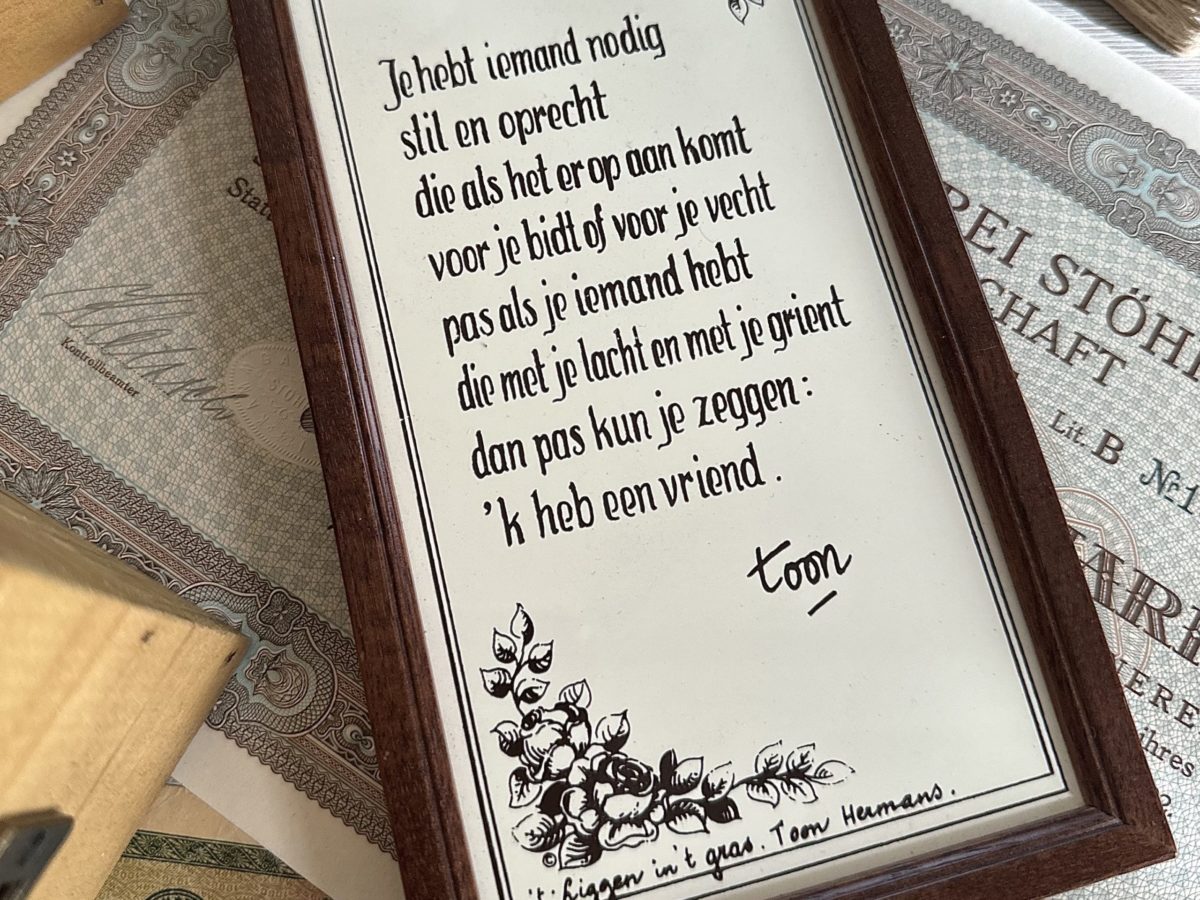 Je hebt iemand nodig
stil en oprecht
die als het er op aan komt
voor je bidt of voor je vecht
pas als je iemand hebt
die met je lacht en met je grient
dan pas kun je zeggen:
'k heb een vriend.
toon
© 't Liggen in 't gras. Toon Hermans.
Kontrollbeamter
REI STÖH
SCHAFT
Lit. B № 1